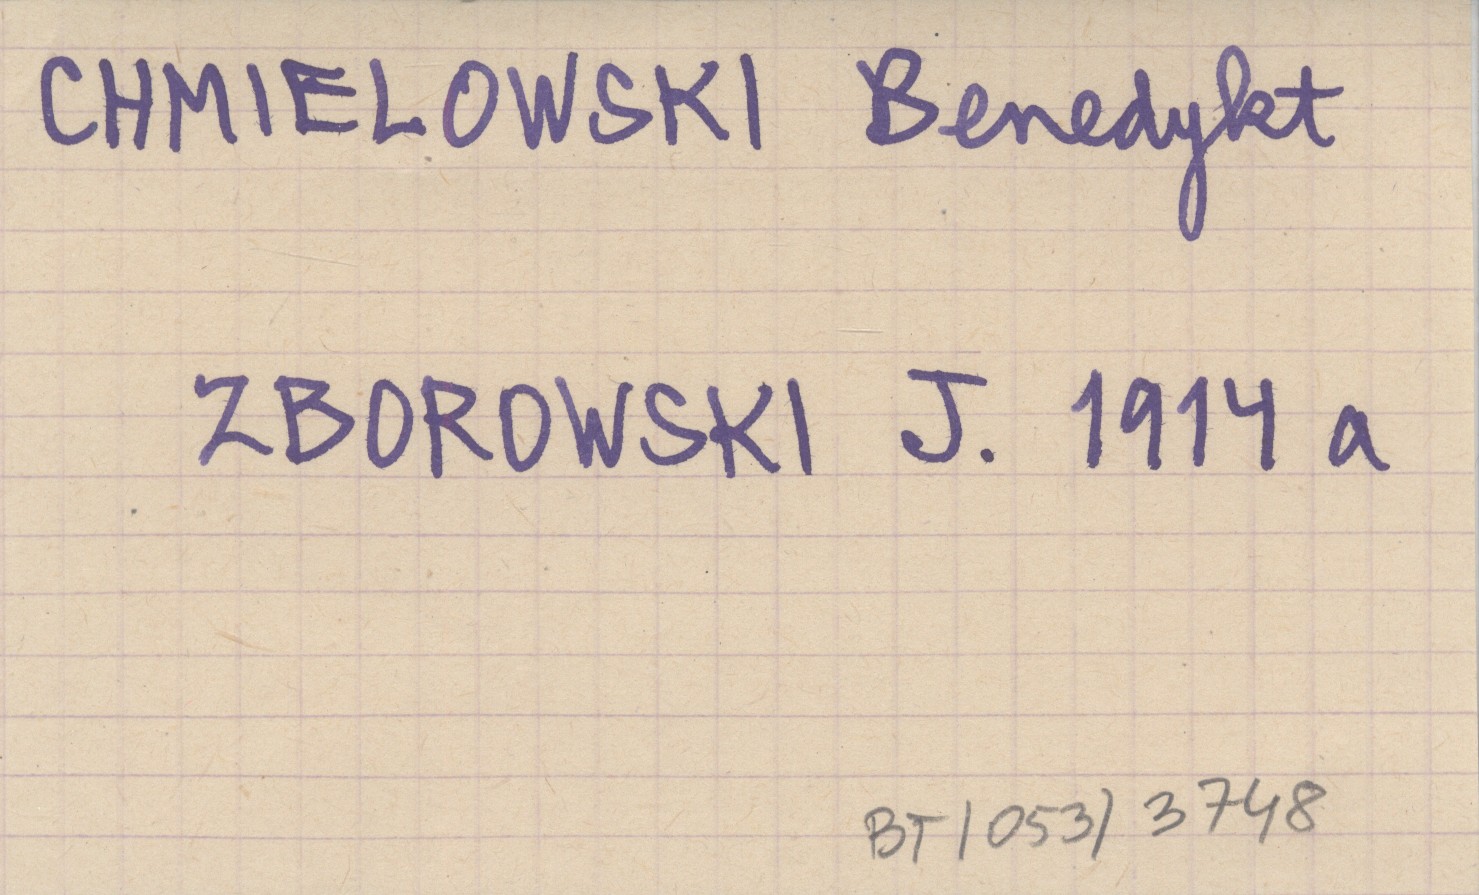 CHMIELOWSKI Benedykt
ZBOROWSKI J. 1914 a
BT/053/3748